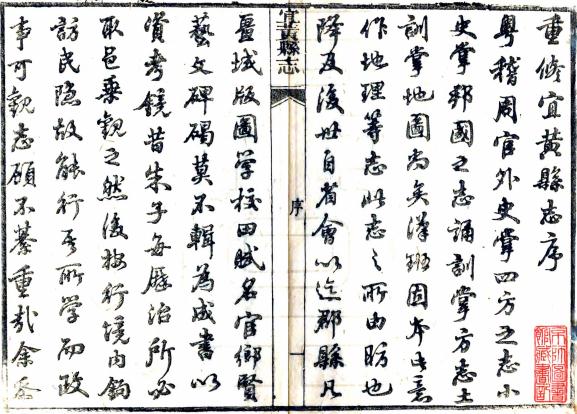 重修宜黃縣志序
粵稽周官外史掌四方之志小
史掌邦國之志誦訓掌方志土
訓掌地圖尚矣漢班固本此意
作地理等志此志之所由昉也
降及後世自省會以迄郡縣凡
宜黃縣志
序
一
疆域版圖學校田賦名宦鄉賢
藝文碑碣莫不輯為成書以
資考鏡昔朱子每歷治所必
取邑乘觀之然後按行境內銅
訪民隱故能行其所學而政
事可觀志顧不綦重哉余忝